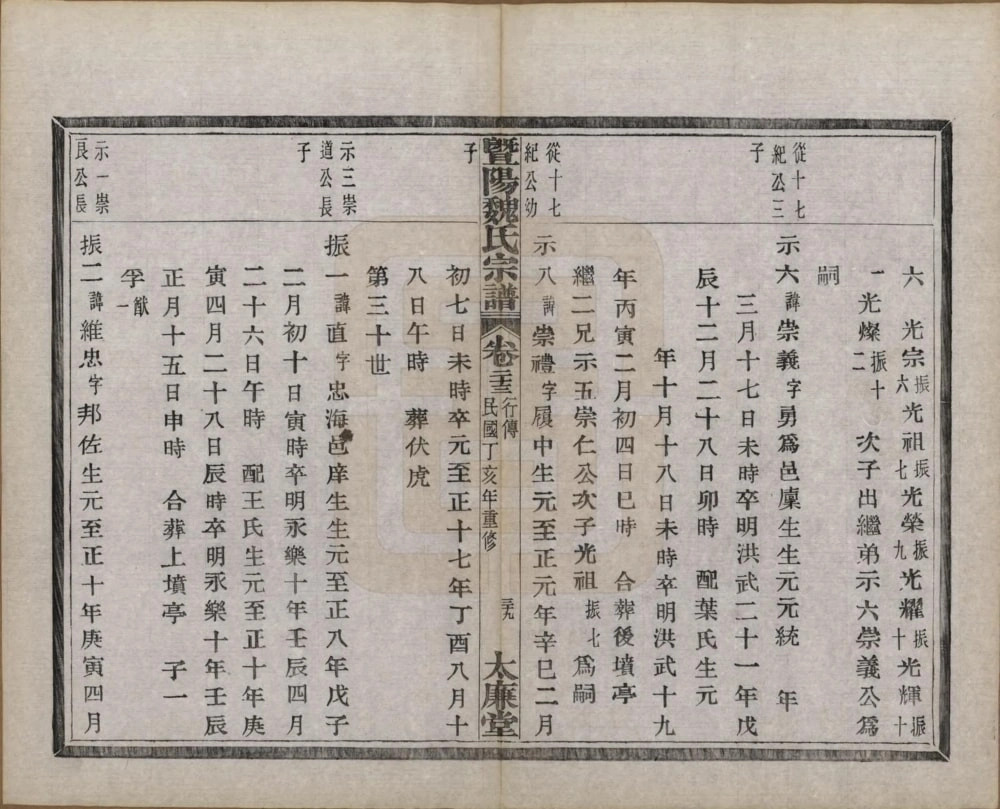 六　光宗振六光祖振七光榮振九光耀振十光輝振十
一光燦振十二　次子出繼弟示六崇義公爲
嗣
從十七紀公三子
示六諱崇義字勇爲邑廩生生元元統　年
三月十七日未時卒明洪武二十一年戊
辰十二月二十八日卯時　配葉氏生元
年十月十八日未時卒明洪武十九
年丙寅二月初四日巳時　合葬後墳亭
繼二兄示五崇仁公次子光祖振七爲嗣
從十七紀公幼子
示八諱崇禮字履中生元至正元年辛巳二月
暨陽魏氏宗譜　卷二十三　行傳　民國丁亥年重修　三十九　太廉堂
初七日未時卒元至正十七年丁酉八月十
八日午時　葬伏虎
第三十世
示三崇道公長子
振一諱直字忠海邑庠生生元至正八年戊子
二月初十日寅時卒明永樂十年壬辰四月
二十六日午時　配王氏生元至正十年庚
寅四月二十八日辰時卒明永樂十年壬辰
正月十五日申時　合葬上墳亭　子一
猷孚一
示一崇良公長
振二諱維忠字邦佐生元至正十年庚寅四月